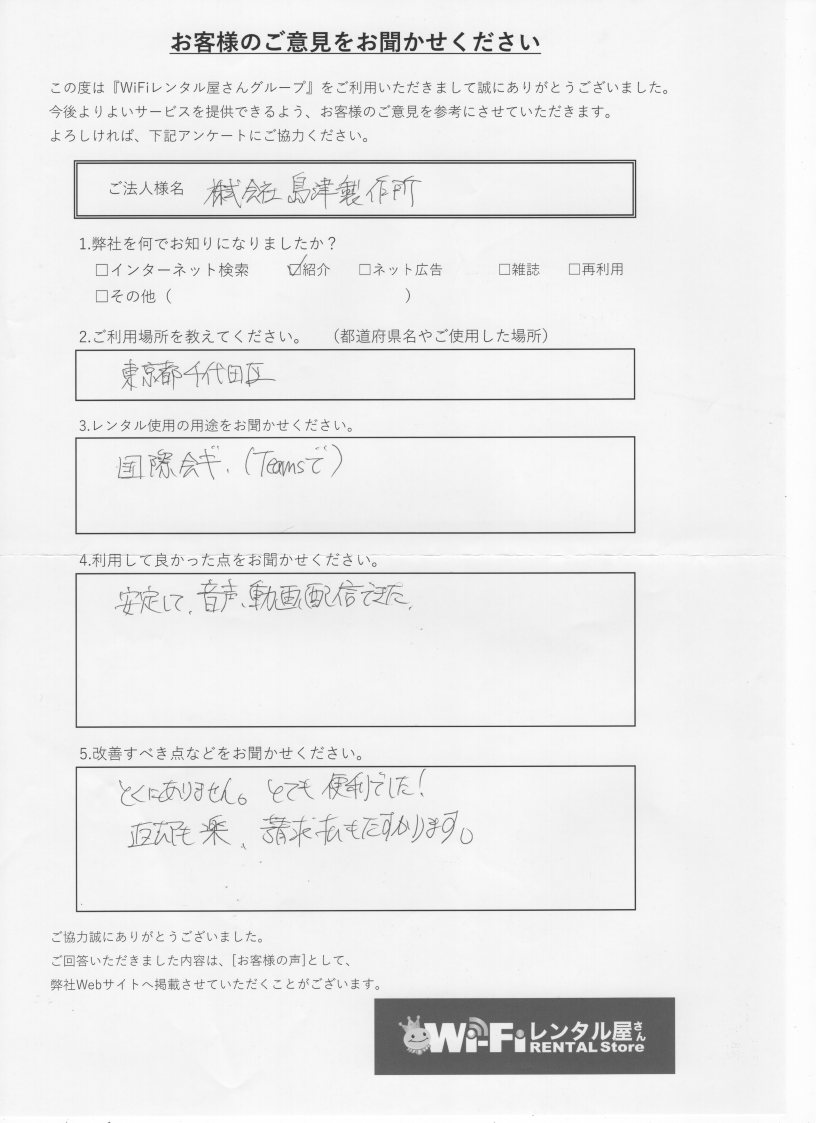 お客様のご意見をお聞かせください
この度は『WiFiレンタル屋さんグループ』をご利用いただきまして誠にありがとうございました。
今後よりよいサービスを提供できるよう、お客様のご意見を参考にさせていただきます。
よろしければ、下記アンケートにご協力ください。
ご法人様名 株式会社島津製作所
1.弊社を何でお知りになりましたか？
□インターネット検索 ☑紹介 □ネット広告 □雑誌 □再利用
□その他（ ）
2.ご利用場所を教えてください。 （都道府県名やご使用した場所）
東京都千代田区
3.レンタル使用の用途をお聞かせください。
国際会ギ、(Teamsで)
4.利用して良かった点をお聞かせください。
安定して、音声、動画配信できた、
5.改善すべき点などをお聞かせください。
とくにありません。とても便利でした!
も楽、請求払もたすかります。
ご協力誠にありがとうございました。
ご回答いただきました内容は、[お客様の声]として、
弊社Webサイトへ掲載させていただくことがございます。
Wi-Fiレンタル屋さん
RENTAL Store